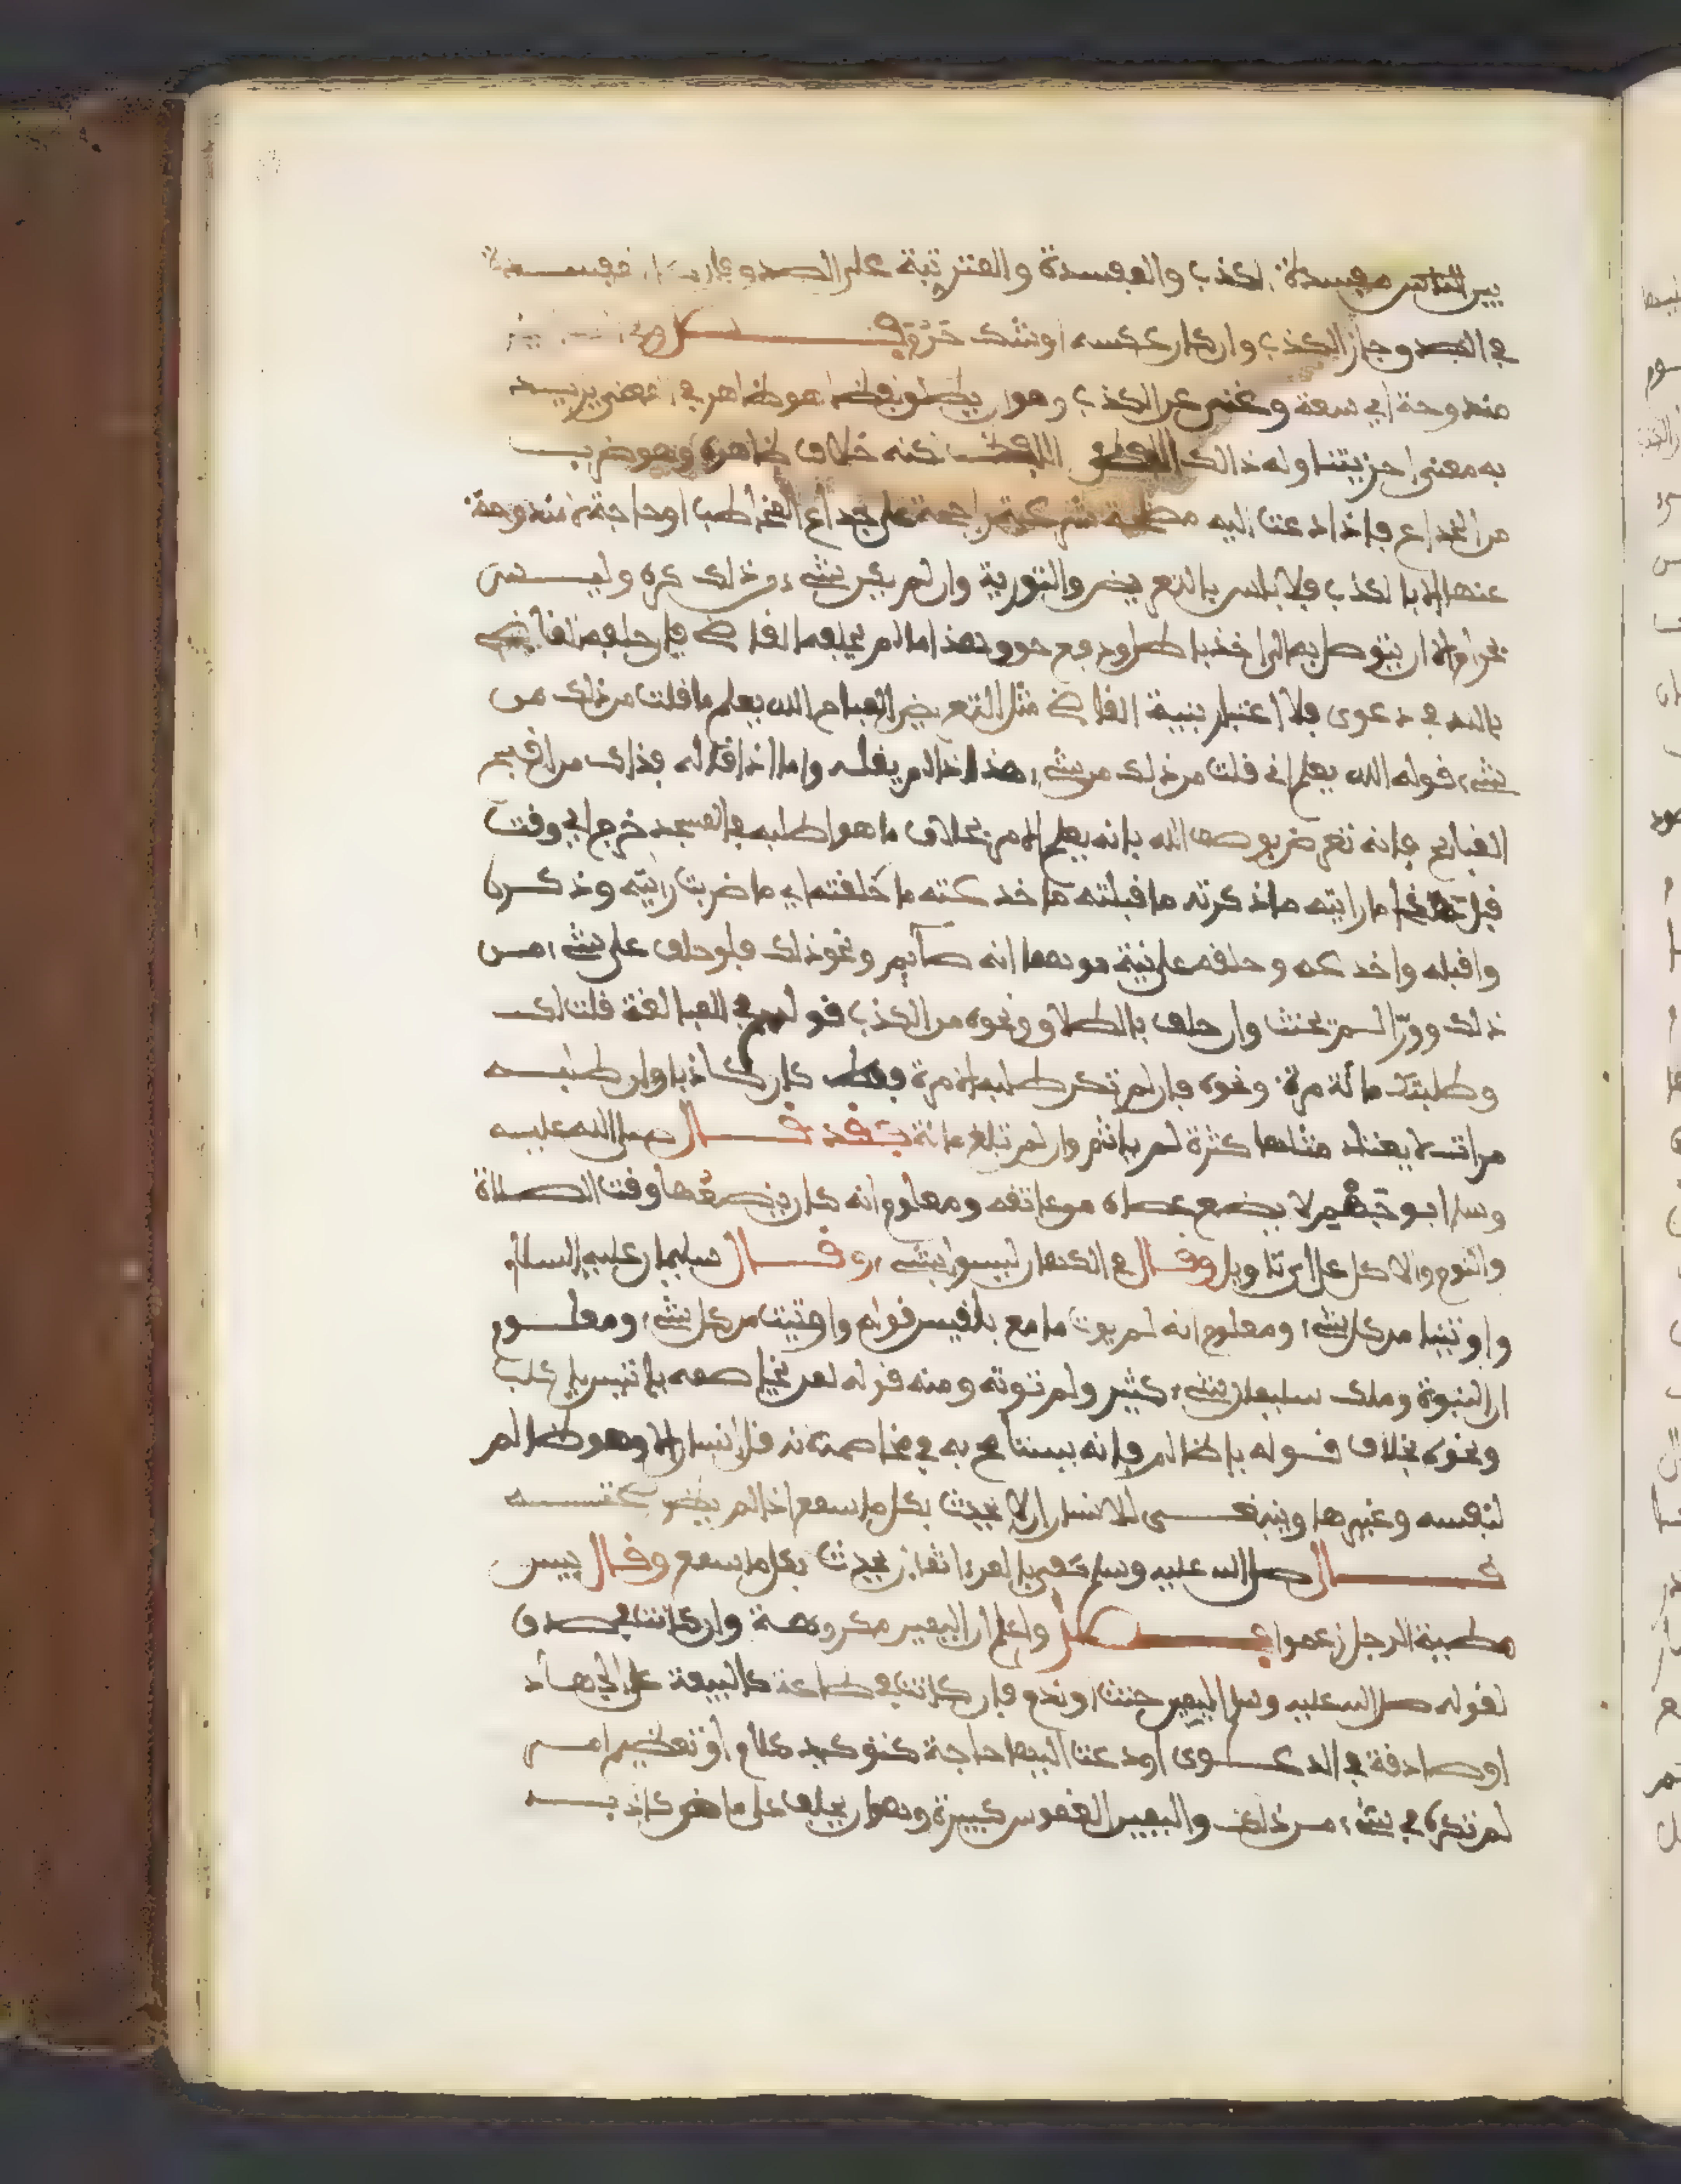 بين الناس مفسدة الكذب والمفسدة والمترتبة على الصدق فإن كانت مفسدة
في الصدق جاز الكذب وان كان عكسه او شك حرم فصل في
مندوحة اي سعة وغنى عن الكذب وهو ان يطلق لفظا هو ظاهر في معنى يريد
به معنى اخر يتناوله ذالك اللفظ لكنه خلاف ظاهره وهو ضرب
من الخداع فاذا دعت اليه مصلحة شرعية راجحة على خداع المخاطب او حاجة لا مندوحة
عنها الا بالكذب فلا باس بالتعريض والتورية وان لم يكن شيء من ذلك كره وليس
بحرام الا ان يتوصل به الى اخذ باطل او دفع حق وهذا ما لم يحلفه القاضي فان حلفه القاضي
بالله في دعوى فلا اعتبار بنية القاضي مثل التعريض المباح الله يعلم ما قلت من ذلك من
شيء قوله الله يعلم اني قلت من ذلك من شيء هذا اذا لم يقله واما اذا قاله فذاك من اقبح
القبايح فانه تعرض بوصف الله بانه يعلم الامر بخلاف ما هو اطلبه في المسجد خرج اي وقت
قبل هذا ما رايته ما ذكرته ما قبلته ما خدكته ما خلفته اي ما ضربت رايته وذكرها
واقبله واخدكه وحلفه على نية موهما انه صايم ونحو ذلك فلو حلف على شيء من
ذلك وورّا لم يحنث وان حلف بالطلاق ونحوه من الكذب قولهم في المبالغة قلت لك
وطلبتك مائة مرة ونحوه فان لم تكن طلبه الا مرة فقط كان كاذبا وان طلبه
مرات لا يعتاد مثلها كثرة لم ياثم وان لم تبلغ مائة فقد قال صلى الله عليه
وسلم ابو جهم لا يضع عصاه عن عاتقه ومعلوم انه كان يضعها وقت الصلاة
والنوم والاكل على تاويل وقال في الكهان ليسوا بشيء وقال سليمان عليه السلام
واوتينا من كل شيء ومعلوم انه لم يوت ما مع بلقيس قوله واوتيت من كل شيء ومعلوم
ان النبوة وملك سليمان شيء كثير ولم توته ومنه قوله لمن يخاصمه يا تيس يا كلب
ونحوه بخلاف قوله يا ظالم فانه يتسامح به في مخاصمته قل انسان الا وهو ظالم
لنفسه وغيرها وينبغي للانسان الا يحدث بكل ما سمع اذا لم يظن صحته
قال صلى الله عليه وسلم كفى بالمرء اثما ان يحدث بكل ما سمع وقال بيس
مطية الرجل زعموا فصل واعلم ان اليمين مكروهة وان كانت في صدق
لقوله صلى الله عليه وسلم اليمين حنث او ندم فان كانت في طاعة كالبيعة على الجهاد
او صادقة في الدعوى او دعت اليها حاجة كتوكيد كلام او تعظيم امر
لم تكره في شيء من ذلك واليمين الغموس كبيرة وهو ان يحلف على ماض كاذب